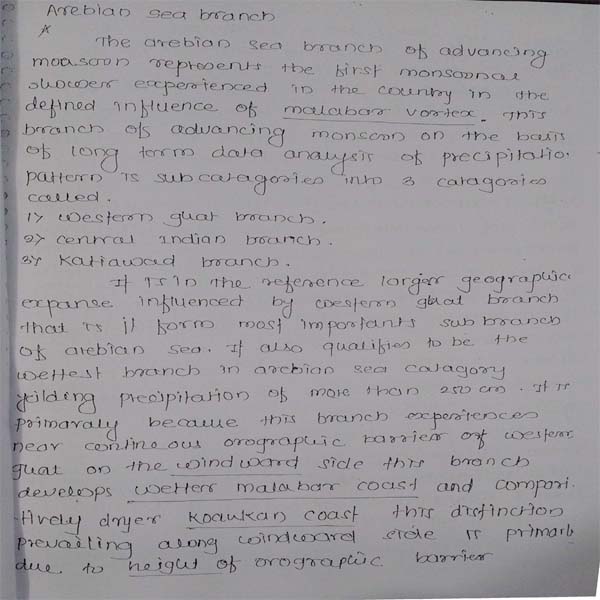 Arebian sea branch
The arebian sea branch of advancing
monsoon represents the first monsoonal
shower experienced in the country in the
defined influence of malabar vortex. This
branch of advancing monsoon on the basis
of long term data analysis of precipitatio
pattern is subcatagories into 3 catagories
called.
1) western ghat branch.
2) central Indian branch.
3) Katiawad branch.
If is in the reference larger geographic
expanse influenced by western ghat branch
that is it form most importants sub branch
of arebian sea. It also qualifies to be the
wettest branch in arebian sea catagory
yeilding precipitation of more than 250 cm. It is
primaraly because this branch experiences
near contineous orographic barrier of western
ghat on the windward side this branch
develops wetter malabar coast and compari
tively dryer koawkan coast this distinction
prevailing along windward side is primarly
due to height of orographic barrier